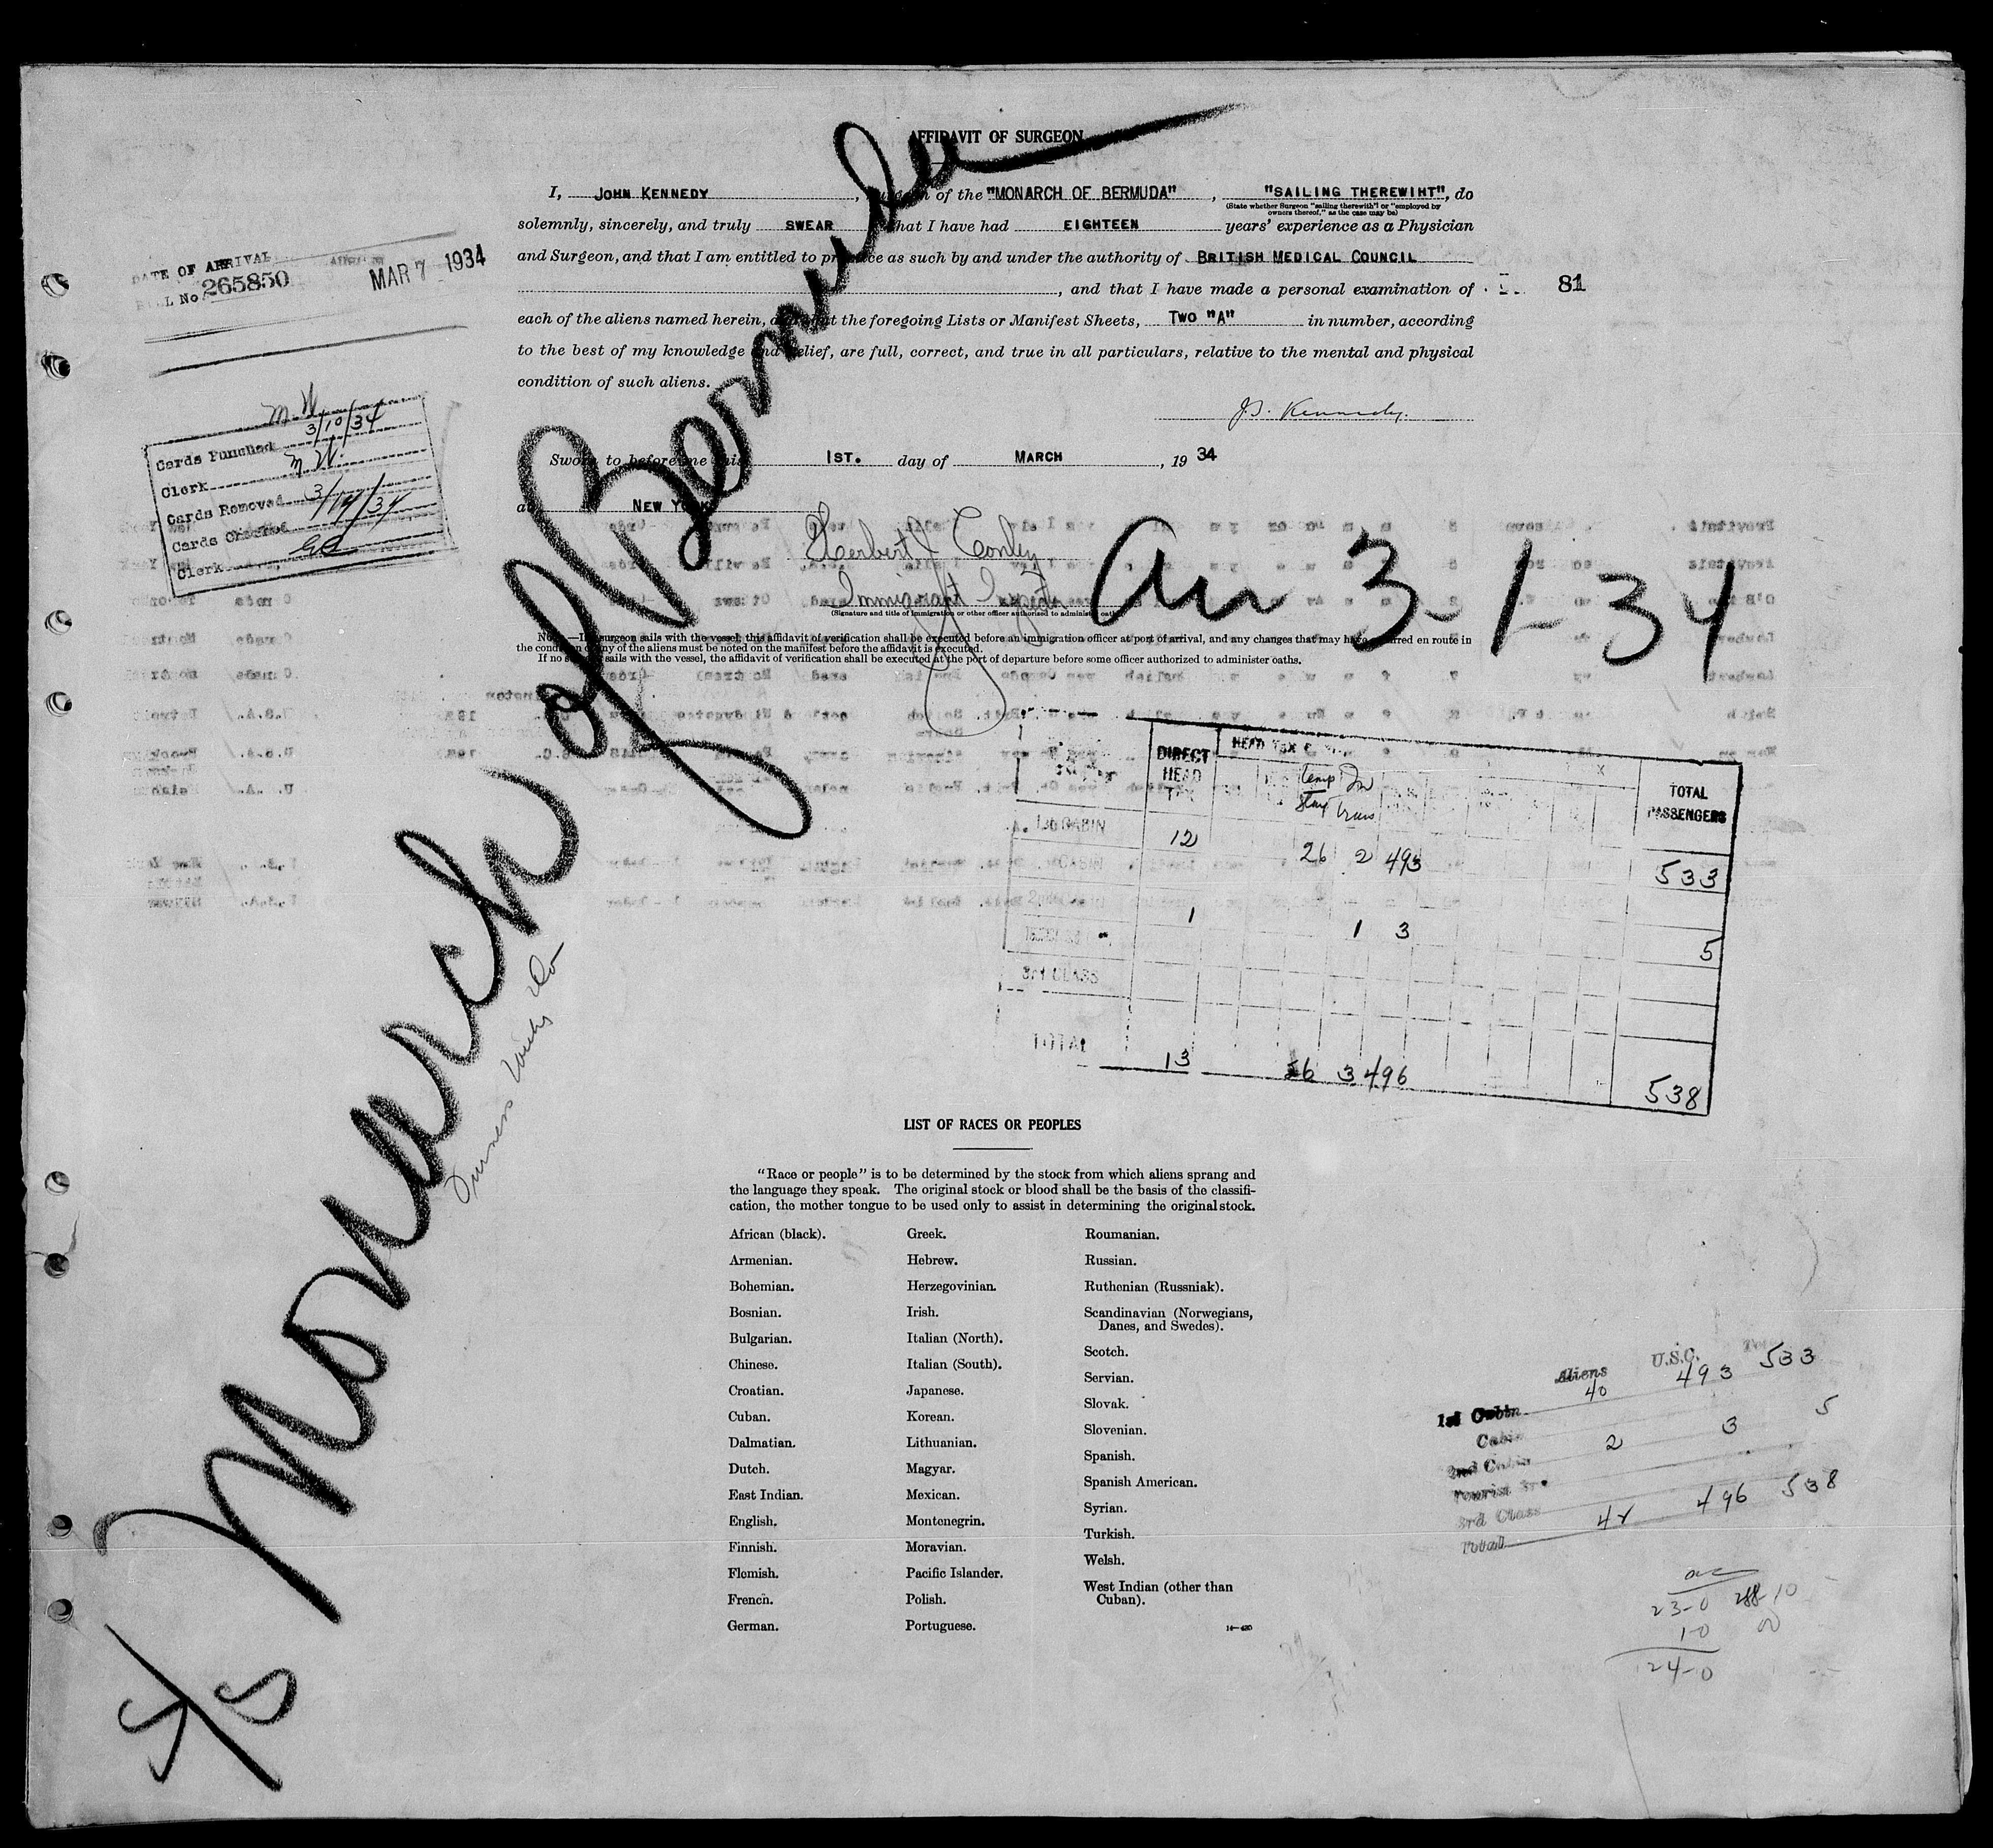 AFFIDAVIT OF SURGEON
I, JOHN KENNEDY, Surgeon of the "MONARCH OF BERMUDA", "SAILING THEREWIHT", do
(State whether Surgeon "sailing therewith" or "employed by owners thereof," as the case may be)
solemnly, sincerely, and truly SWEAR that I have had EIGHTEEN years' experience as a Physician
and Surgeon, and that I am entitled to practice as such by and under the authority of BRITISH MEDICAL COUNCIL
, and that I have made a personal examination of
each of the aliens named herein, and that the foregoing Lists or Manifest Sheets, TWO "A" in number, according
to the best of my knowledge and belief, are full, correct, and true in all particulars, relative to the mental and physical
condition of such aliens.
J. Kennedy.
Sworn to before me this 1ST. day of MARCH, 19 34
at NEW YORK
Herbert J Conley
Immigrant Inspt
(Signature and title of immigration or other officer authorized to administer oaths)
NOTE.—If a surgeon sails with the vessel, this affidavit of verification shall be executed before an immigration officer at port of arrival, and any changes that may have occurred en route in
the condition of any of the aliens must be noted on the manifest before the affidavit is executed.
If no surgeon sails with the vessel, the affidavit of verification shall be executed at the port of departure before some officer authorized to administer oaths.
81
DATE OF ARRIVAL MAR 7 1934
ROLL No. 265850
M.W.
Cards Punched 3/10/34
Clerk M.W.
Cards Removed 3/14/34
Cards Checked
Clerk
S/S Monarch of Bermuda
Furness Withy Co
Arr 3-1-34
DIRECT HEAD TAX
HEAD TAX
Temp Stay
In Trans
TOTAL PASSENGERS
1st CABIN 12 26 2 493 533
2nd CABIN 1 1 3 5
3rd CLASS
TOTAL 13 26 3 496 538
LIST OF RACES OR PEOPLES
"Race or people" is to be determined by the stock from which aliens sprang and
the language they speak. The original stock or blood shall be the basis of the classifi-
cation, the mother tongue to be used only to assist in determining the original stock.
African (black).
Armenian.
Bohemian.
Bosnian.
Bulgarian.
Chinese.
Croatian.
Cuban.
Dalmatian.
Dutch.
East Indian.
English.
Finnish.
Flemish.
French.
German.
Greek.
Hebrew.
Herzegovinian.
Irish.
Italian (North).
Italian (South).
Japanese.
Korean.
Lithuanian.
Magyar.
Mexican.
Montenegrin.
Moravian.
Pacific Islander.
Polish.
Portuguese.
Roumanian.
Russian.
Ruthenian (Russniak).
Scandinavian (Norwegians,
Danes, and Swedes).
Scotch.
Servian.
Slovak.
Slovenian.
Spanish.
Spanish American.
Syrian.
Turkish.
Welsh.
West Indian (other than
Cuban).
Aliens U.S.C. Total
1st Cabin 40 493 533
Cabin
2nd Cabin 2 3 5
Tourist 3rd
3rd Class
Total 42 496 538
23-0
1-0
24-0